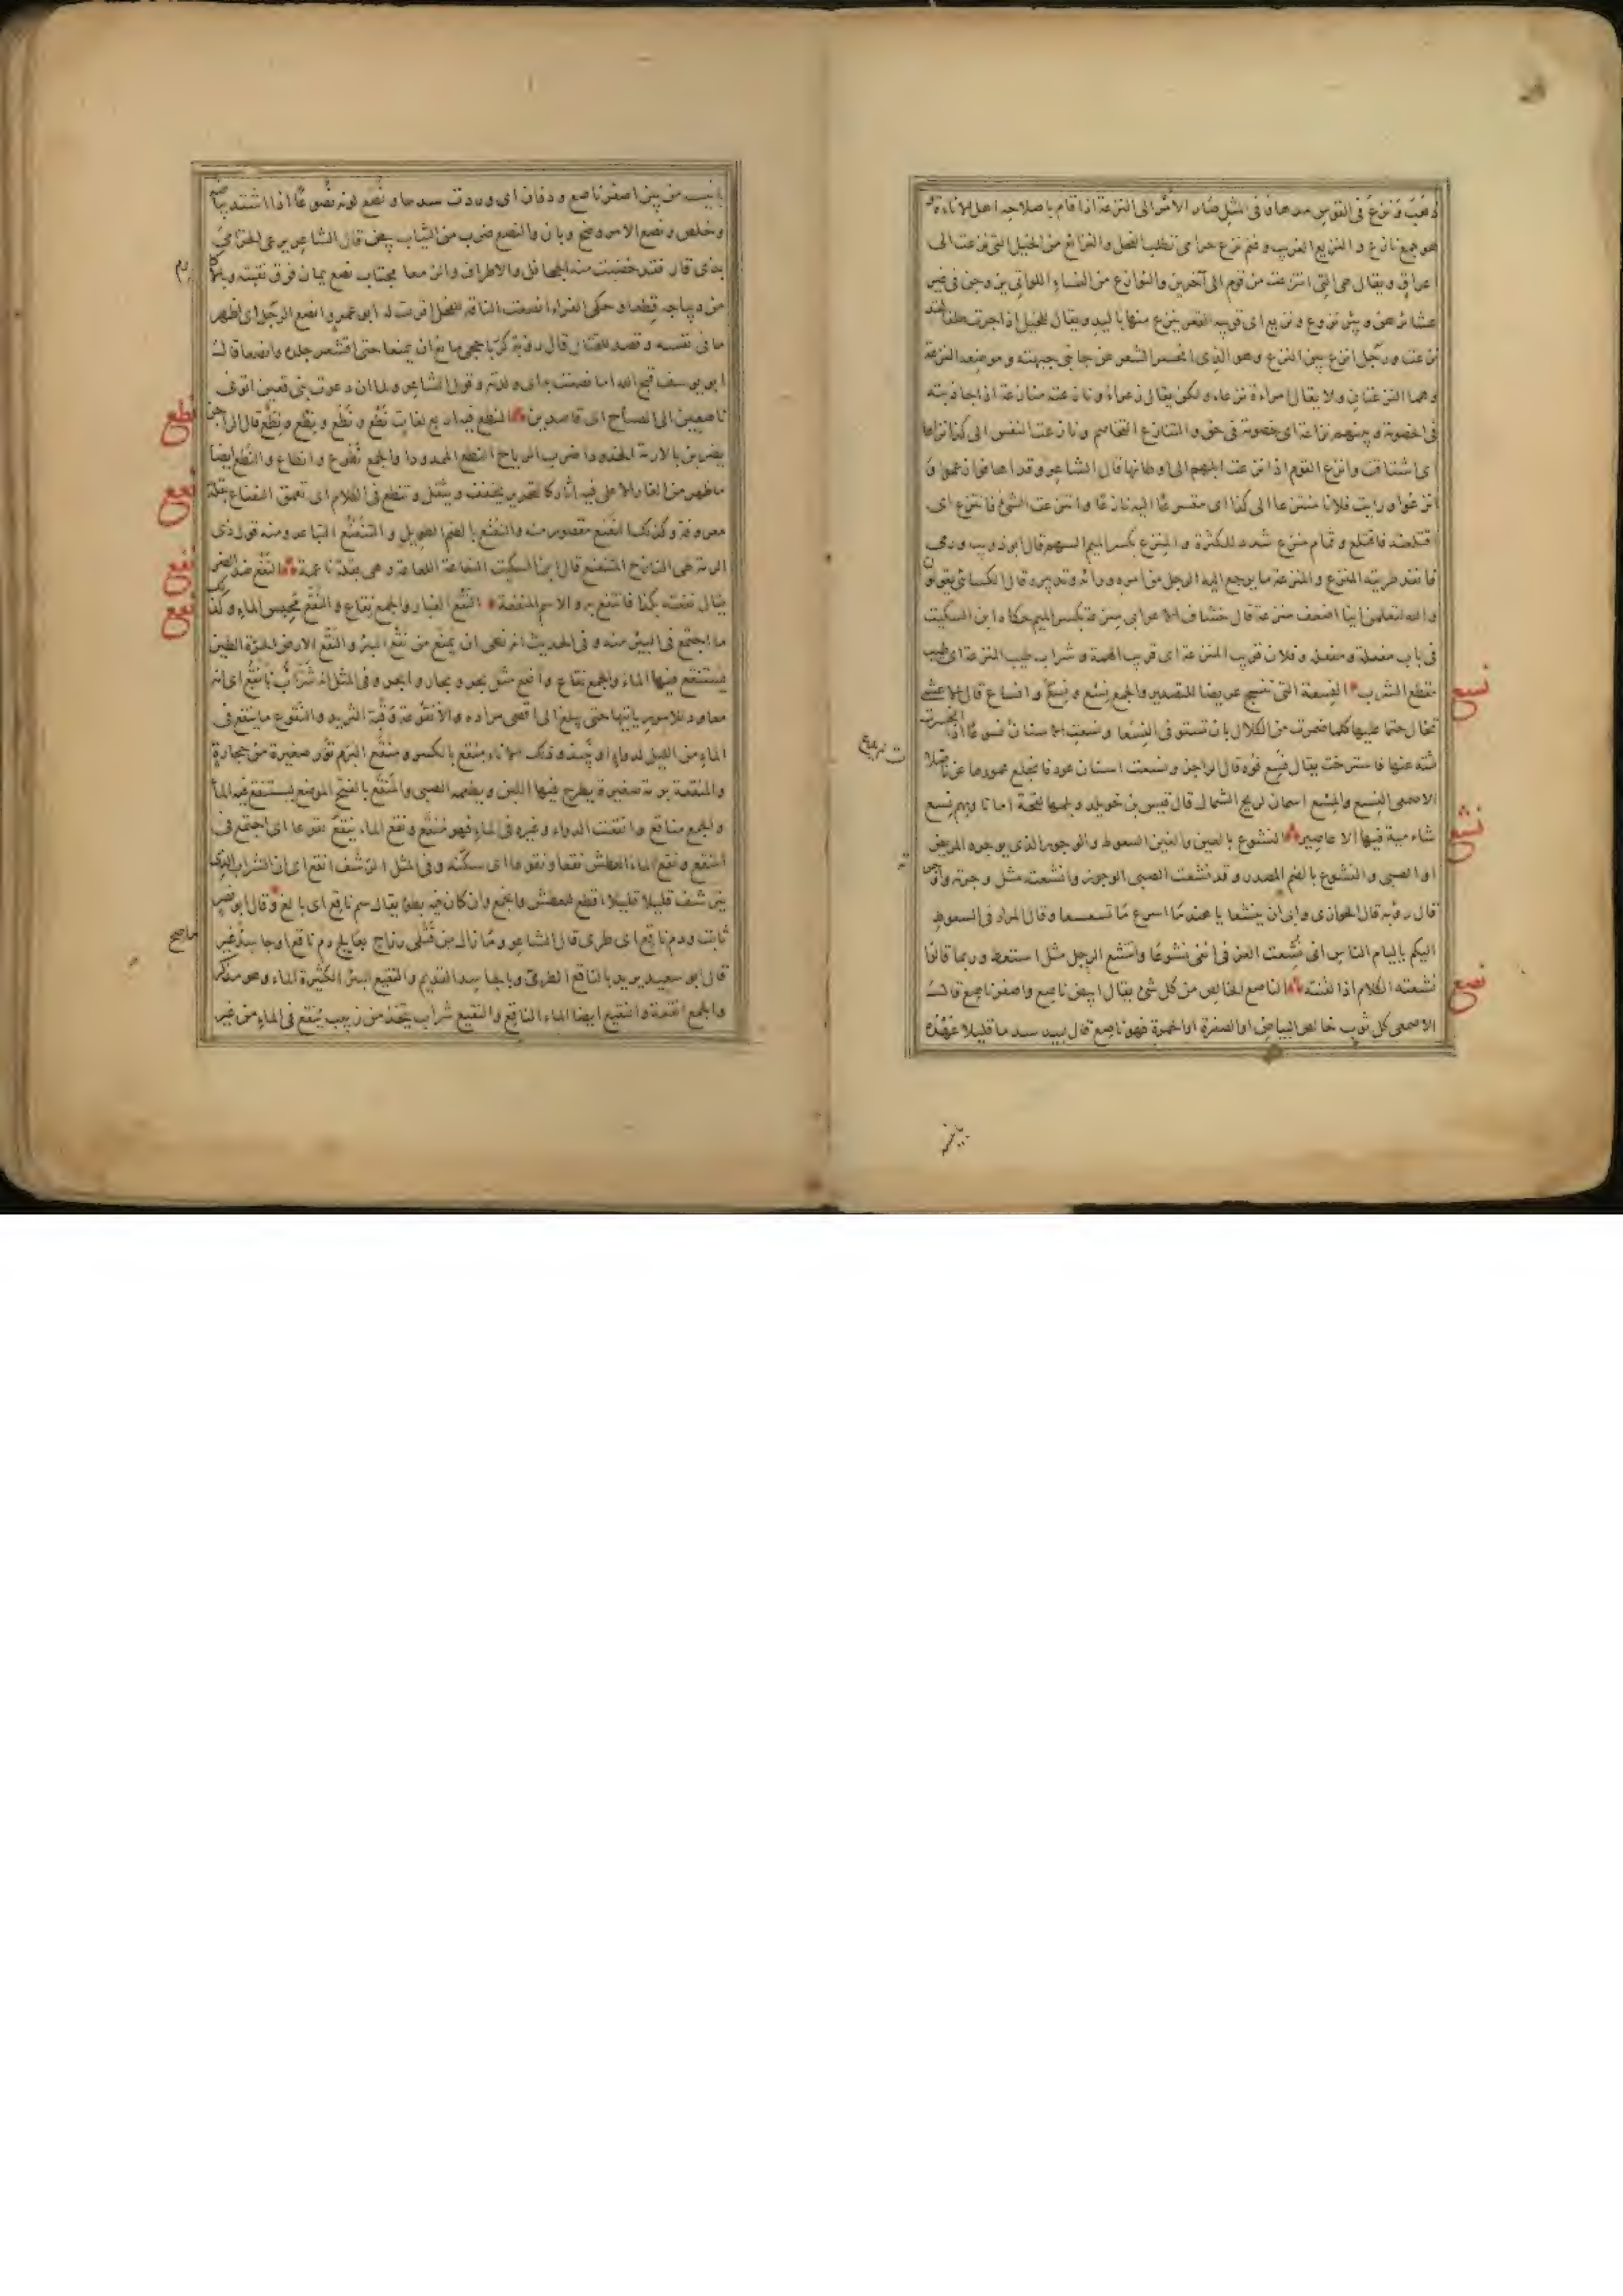 ذهب ونزع فى القوس مدها وفى المثل صار الامر الى النزعة اذا قام باصلاحه اهل الاناءة
هو جمع نازع و النزيع الغريب وغنم نزع حرامى تطلب الفحل والنزائع من الخيل التى نزعت الى
اعراق ويقال هى التى انتزعت من قوم الى آخرين والنوازع من النساء اللواتى يزوجن فى غير
عشائرهن وبئر نزوع ونزيع اى قريبة القعر ينزع منها باليد ويقال للخيل اذا جرت طلقا لقد
نزعت ورجل انزع بين النزع وهو الذى انحسر الشعر عن جانبى جبهته وموضعه النزعة
وهما النزعتان ولا يقال امراءة نزعاء ولكن يقال زعراء ونازعته منازعة اذا جاذبته
فى الخصومة وبينهم نزاعة اى خصومة فى حق والتنازع التخاصم ونازعت النفس الى كذا نزاعا
اى اشتاقت وانزع القوم اذا نزعت ابلهم الى اوطانها قال الشاعر وقد اهافوا زعموا و
انزعوا ورايت فلانا منتزعا الى كذا اى متسرعا اليه نازعا وانتزعت الشئ فانتزع اى
اقتلعته فاقتلع وثمام منزع شدد للكثرة والمنزع بكسر الميم السهم قال ابو ذويب ورمى
فانفذ طرتيه المنزع والمنزعة ما يرجع اليه الرجل من امره ورائه وتدبيره قال الكسائى يقولون
والله لتعلمن اينا اضعف منزعة قال خشاف الاعرابى منزعة بكسر الميم حكاه ابن السكيت
فى باب مفعلة ومفعلة وفلان قريب المنزعة اى قريب الهمة وشراب طيب المنزعة اى طيب
مقطع الشرب النسعة التى تنسج عريضا للتصدير والجمع نسع ونسع وانساع قال الاعشى
تخال حتما عليها كلما ضمرت من الكلال بان تستوفى النسعا ونسعت الاسنان نسوعا اذا انحسرت
لثته عنها فاسترخت يقال نسع فوه قال الراجز ونسعت اسنان عود فانجلع عمورها عن ناصلات
الاصمعى النسع والمسع اسمان لريح الشمال قال قيس بن خويلد ويلمها لقحة اما تاوبهم نسع
شاءمية فيها الاعاصير النشوع بالعين والغين السعوط والوجور الذى يوجره المريض
او الصبى والنشوع بالضم المصدر وقد نشعت الصبى الوجور وانشعته مثل وجرته واوجرته
قال رؤبة قال الحوازى وابى ان ينشعا يا هند ما اسرع ما تسعسعا وقال المرار فى السعوط
اليكم يا ليام الناس انى نشعت العز فى انفى نشوعا وانتشع الرجل مثل استعط وربما قالوا
نشعته الكلام اذا لقنته الناصع الخالص من كل شئ يقال ابيض ناصع واصفر ناصع قالت
الاصمعى كل ثوب خالص البياض او الصفرة او الحمرة فهو ناصع قال لبيد سدما قليلا عهده
نسع
نشع
نصع
بانيسه من بين اصفر ناصع ودفان اى وردت سدما ونصع لونه نصوعا اذا اشتد بياضه
وخلص ونصع الامر وضح وبان والنصع ضرب من الثياب بيض قال الشاعر يرعى الخزامى
بذى قار فقد خضبت منه الجحافل والاطراف والزمعا مجتاب نصع يمان فوق نقبته وبالاكارع
من ديباجه قطعا وحكى الفراء انصعت الناقة للفحل اقرت له ابو عمرو انصع الرجل اى اظهر
ما فى نفسه وقصد للقتال قال رؤبة كر باحجى مانع ان يمنعا حتى اقشعر جلده وانصعا قالت
ابو يوسف قبح الله اما نصعت به اى ولدته وقول الشاعر ولما ان دعوت بنى قعين اتوف
ناصعين الى الصياح اى قاصدين النطع فيه اربع لغات نطع ونطع ونطع ونطع قال الراجز
يضربن بالازمة الخدودا ضرب الرياح النطع الممدودا والجمع نطوع وانطاع والنطع ايضا
ما ظهر من الغار الاعلى فيه اثار كالتحزيز يخفف ويثقل وتنطع فى الكلام اى تعمق النعناع بقلة
معروفة وكذلك النعنع مقصور منه والنعنع بالضم الطويل والتنعنع التباعد ومنه قول ذى
الرمة طى النازح المتنعنع قال ابن السكيت النعاعة اللعاعة وهى بقلة ناعمة النفع ضد الضر
يقال نفعته بكذا فانتفع به والاسم المنفعة النقع الغبار والجمع نقاع والنقع محبس الماء وكذلك
ما اجتمع فى البئر منه وفى الحديث انه نهى ان يمنع من نقع البئر والنقع الارض الحرة الطين
يستنقع فيها الماء والجمع نقاع وانقع مثل بحر وبحار وابحر وفى المثل انه شراب بانقع اى انه
معاود للامور ياتيها حتى يبلغ الى اقصى مراده والانقوعة وقبة الثريد والنقوع ما ينقع فى
الماء من الليل لدواء او نبيذ وذلك الاناء منقع بالكسر ومنقع البرم تور صغيرة من حجارة
والمنقعة برمة صغيرة يطرح فيها اللبن ويطعمه الصبى والمنقع بالفتح الموضع يستنقع فيه الماء
والجمع مناقع وانقعت الدواء وغيره فى الماء فهو منقع ونقع الماء ينقع نقوعا اى اجتمع فى
المنقع ونقع الماء العطش نقعا ونقوعا اى سكنه وفى المثل الرشف انقع اى ان الشراب الذى
يترشف قليلا قليلا اقطع للعطش وانجع وان كان فيه بطء يقال سم ناقع اى بالغ وقال ابو نصر
ثابت ودم ناقع اى طرى قال الشاعر وما زال من قتلى رزاح بعالج دم ناقع او جاسد غير
قال ابو سعيد يريد بالناقع الطرى وبالجاسد القديم والنقيع البئر الكثيرة الماء وهو مذكر
والجمع انقعة والنقيع ايضا الماء الناقع والنقيع شراب يتخذ من زبيب ينقع فى الماء من غير
نطع
نعع
نفع
نقع
ماصح